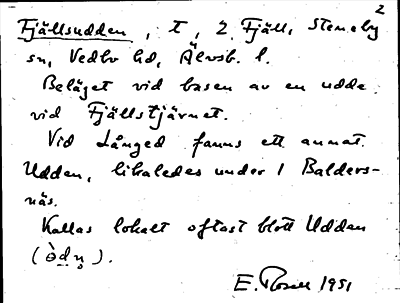 2
Fjällsudden, t, 2 Fjäll, Steneby
sn, Vedbo hd, Älvsb. l.
Beläget vid basen av en udde
vid Fjällstjärnet.
Vid Långed fanns ett annat
Udden, likaledes under 1 Balders-
näs.
Kallas lokalt oftast blott Udden
(
E. Rosell 1951